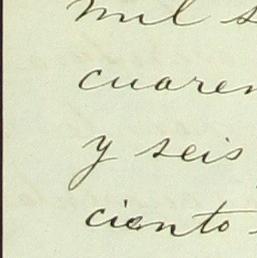 mil s
cuaren
y seis
ciento